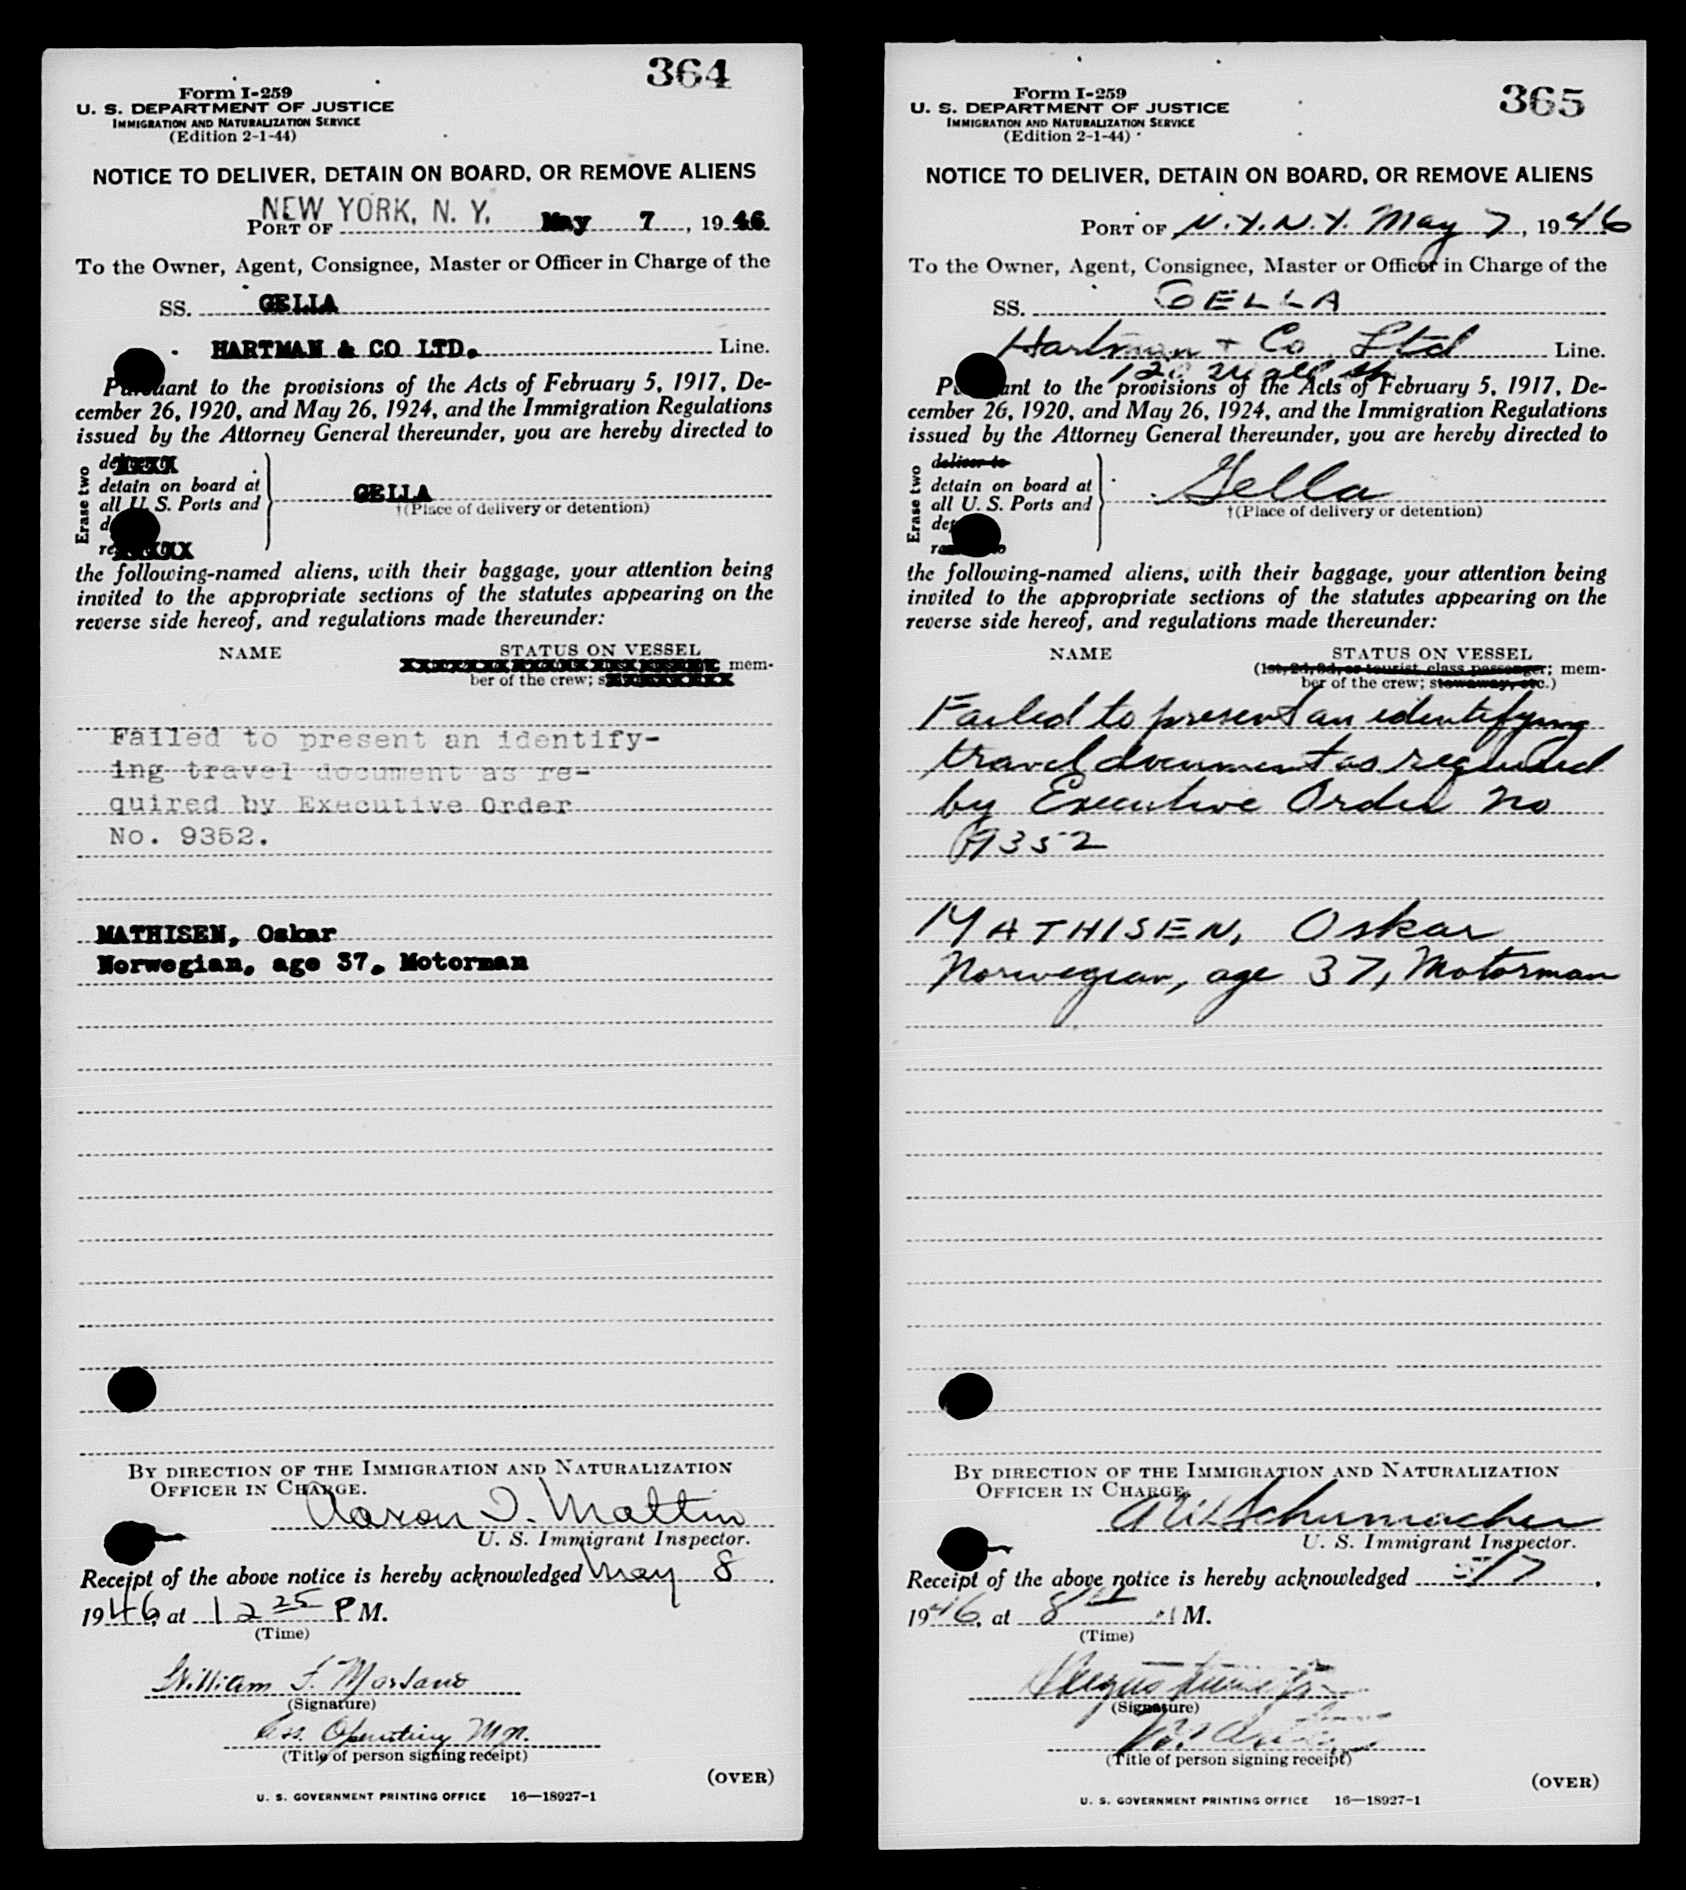 364
Form I-259
U. S. DEPARTMENT OF JUSTICE
IMMIGRATION AND NATURALIZATION SERVICE
(Edition 2-1-44)
NOTICE TO DELIVER, DETAIN ON BOARD, OR REMOVE ALIENS
NEW YORK, N. Y.
PORT OF May 7, 1946
To the Owner, Agent, Consignee, Master or Officer in Charge of the
SS. GELLA
HARTMAN & CO LTD. Line.
Pursuant to the provisions of the Acts of February 5, 1917, De-
cember 26, 1920, and May 26, 1924, and the Immigration Regulations
issued by the Attorney General thereunder, you are hereby directed to
Erase two
detain on board at
all U. S. Ports and
GELLA
†(Place of delivery or detention)
the following-named aliens, with their baggage, your attention being
invited to the appropriate sections of the statutes appearing on the
reverse side hereof, and regulations made thereunder:
NAME STATUS ON VESSEL
mem-
ber of the crew;
Failed to present an identify-
ing travel document as re-
quired by Executive Order
No. 9352.
MATHISEN, Oskar
Norwegian, age 37, Motorman
BY DIRECTION OF THE IMMIGRATION AND NATURALIZATION
OFFICER IN CHARGE.
Aaron I. Maltin
U. S. Immigrant Inspector.
Receipt of the above notice is hereby acknowledged May 8.
1946, at 12 25 P M.
(Time)
William F.
(Signature)
Ass. Operating Mgr.
(Title of person signing receipt)
(OVER)
U. S. GOVERNMENT PRINTING OFFICE 16—18927-1
365
Form I-259
U. S. DEPARTMENT OF JUSTICE
IMMIGRATION AND NATURALIZATION SERVICE
(Edition 2-1-44)
NOTICE TO DELIVER, DETAIN ON BOARD, OR REMOVE ALIENS
PORT OF N.Y.N.Y. May 7, 1946
To the Owner, Agent, Consignee, Master or Officer in Charge of the
SS. GELLA
Hartman + Co Ltd Line.
120 Wall St
Pursuant to the provisions of the Acts of February 5, 1917, De-
cember 26, 1920, and May 26, 1924, and the Immigration Regulations
issued by the Attorney General thereunder, you are hereby directed to
Erase two
deliver to
detain on board at
all U. S. Ports and
Gella
†(Place of delivery or detention)
the following-named aliens, with their baggage, your attention being
invited to the appropriate sections of the statutes appearing on the
reverse side hereof, and regulations made thereunder:
NAME STATUS ON VESSEL
(1st, 2d, 3d, or tourist class passenger; mem-
ber of the crew; stowaway, etc.)
Failed to present an identifying
travel document as required
by Executive Order No
9352
MATHISEN, Oskar
Norwegian, age 37, Motorman
BY DIRECTION OF THE IMMIGRATION AND NATURALIZATION
OFFICER IN CHARGE.
Schumacher
U. S. Immigrant Inspector.
Receipt of the above notice is hereby acknowledged 5/7.
1946, at 8 M.
(Time)
(Signature)
(Title of person signing receipt)
(OVER)
U. S. GOVERNMENT PRINTING OFFICE 16—18927-1